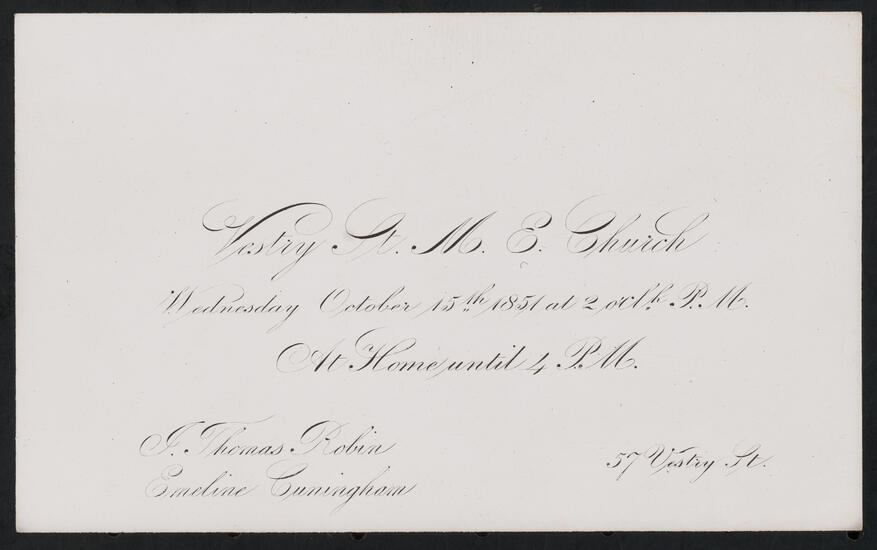 Vestry St. M. E. Church
Wednesday October 15th 1851 at 2 oclk P. M.
At Home until 4 P. M.
J. Thomas Robin
Emeline Cuningham
57 Vestry St.